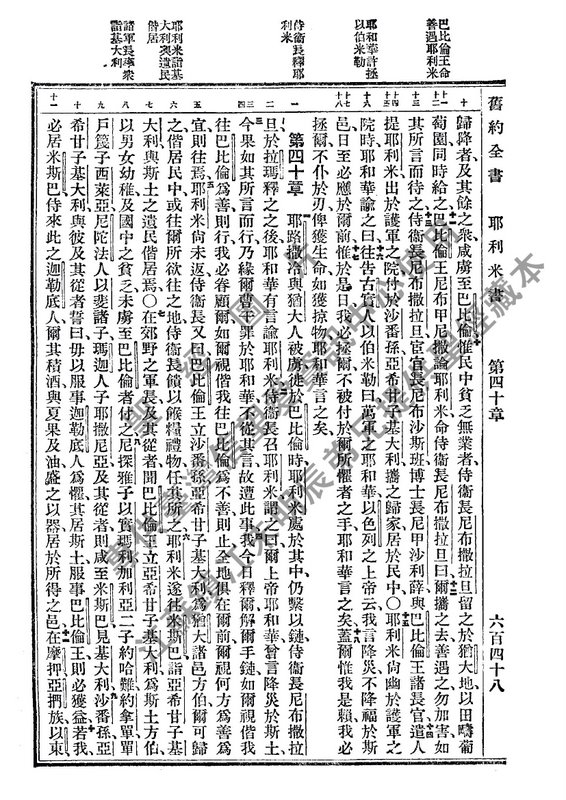 舊約全書 耶利米書 第四十章 六百四十八
巴比倫王命
善遇耶利米
耶和華許拯
以伯米勒
侍衛長釋耶
利米
耶利米詣基
大利與遺民
偕居
諸軍長率衆
詣基大利
十 歸降者及其餘之衆咸虜至巴比倫惟民中貧乏無業者侍衛長尼布撒拉旦留之於猶大地以田疇葡
十一 十二 萄園同時給之巴比倫王尼布甲尼撒論耶利米命侍衛長尼布撒拉旦曰爾攜之去善遇之勿加害如
十三 其所言而待之侍衛長尼布撒拉旦宦官長尼布沙斯班博士長尼甲沙利薛與巴比倫王諸長官遣人
十四 十五 提耶利米出於護軍之院付於沙番孫亞希甘子基大利攜之歸家居於民中〇耶利米尚幽於護軍之
十六 院時耶和華諭之曰往告古實人以伯米勒曰萬軍之耶和華以色列之上帝云我言降災不降福於斯
十七 十八 邑日至必應於爾前惟於是日我必拯爾不被付於爾所懼者之手耶和華言之矣蓋爾惟我是賴我必
拯爾不仆於刃俾獲生命如獲掠物耶和華言之矣
一 第四十章 耶路撒冷與猶大人被虜徙於巴比倫時耶利米處於其中仍繫以鏈侍衛長尼布撒拉
二 旦於拉瑪釋之之後耶和華有言諭耶利米侍衛長召耶利米謂之曰爾上帝耶和華曾言降災於斯土
三 四 今果如其所言而行乃緣爾曹干罪於耶和華不從其言故遭此事我今日釋爾解爾手鏈如爾視偕我
往巴比倫為善則行我必眷顧爾如爾視偕我往巴比倫為不善則止全地俱在爾前爾視何方為善為
五 宜則往焉耶利米尚未返侍衛長又曰巴比倫王立沙番孫亞希甘子基大利為猶大諸邑方伯爾可歸
之偕居民中或往爾所欲往之地侍衛長饋以餱糧禮物任其所之
六 耶利米遂往米斯巴詣亞希甘子基
七 大利與斯土之遺民偕居焉〇在郊野之軍長及其從者聞巴比倫王立亞希甘子基大利為斯土方伯
八 以男女幼稚及國中之貧乏未虜至巴比倫者付之尼探雅子以實瑪利加利亞二子約哈難約拿單單
九 戶篾子西萊亞尼陀法人以斐諸子瑪迦人子耶撒尼亞及其從者則咸至米斯巴見基大利沙番孫亞
十 希甘子基大利與彼及其從者誓曰毋以服事迦勒底人為懼其居斯土服事巴比倫王則必獲益若我
十一 必居米斯巴侍來此之迦勒底人爾其積酒與夏果及油盛之以器居於所得之邑在摩押亞捫族以東